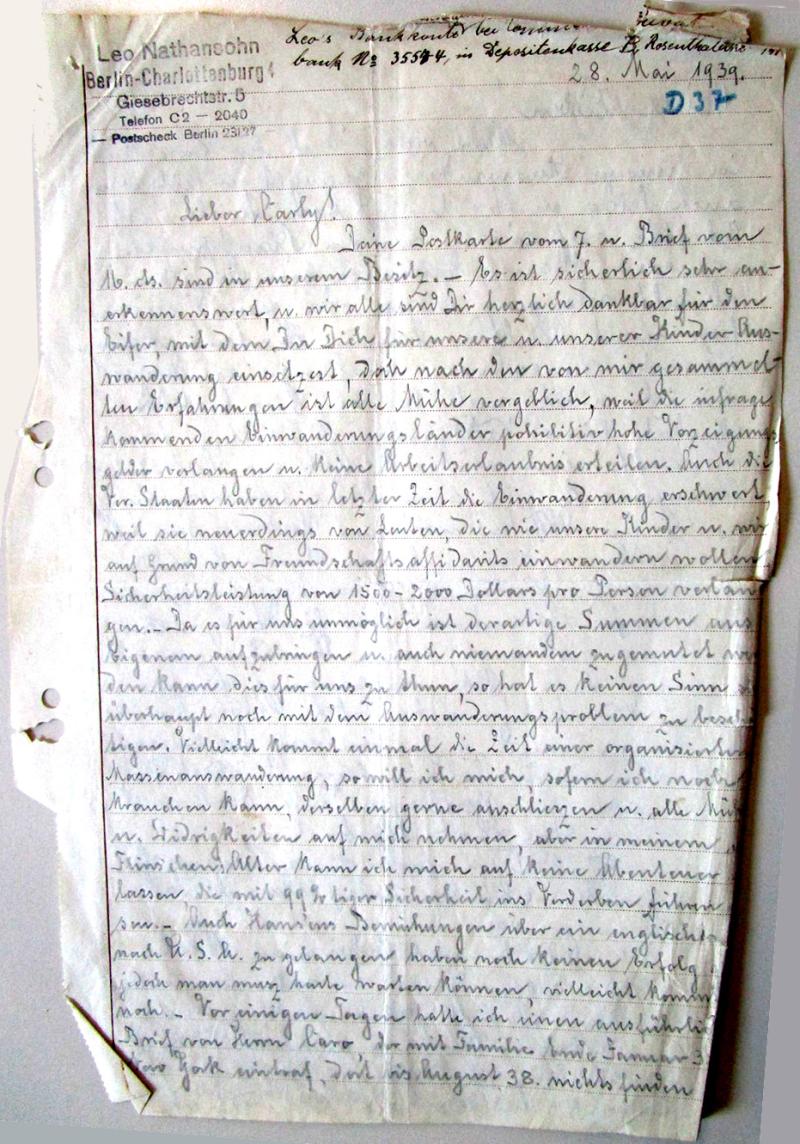 Leo's Bankkonto bei Privat
bank № 35544, in Depositenkasse Rosenthalerstr
Leo Nathansohn
Berlin-Charlottenburg 4
Giesebrechtstr. 5
Telefon C2 — 2040
Postscheck Berlin 23127
28. Mai 1939.
D 37
Lieber Carly!
Deine Postkarte vom 7. u. Brief vom
16. ds. sind in unserem Besitz. — Es ist sicherlich sehr an-
erkennenswert, u. wir alle sind Dir herzlich dankbar für den
Eifer, mit dem Du Dich für unsere u. unserer Kinder Aus-
wanderung einsetzest, doch nach den von mir gesammel-
ten Erfahrungen ist alle Mühe vergeblich, weil die infrage
kommenden Einwanderungsländer pohibitiv hohe Vorzeigungs
gelder verlangen u. keine Arbeitserlaubnis erteilen. Auch die
Ver. Staaten haben in letzter Zeit die Einwanderung erschwert
weil sie neuerdings von Leuten, die wie unsere Kinder u. wir
auf Grund von Freundschaftsaffidavits einwandern wollen
Sicherheitsleistung von 1500 - 2000 Dollars pro Person verlan
gen. — Da es für uns unmöglich ist derartige Summen aus
Eigenem aufzubringen u. auch niemandem zugemutet wer
den kann dies für uns zu thun, so hat es keinen Sinn
überhaupt noch mit dem Auswanderungsproblem zu besch
tigen. Vielleicht kommt einmal die Zeit einer organisierten
Massenauswanderung, so will ich mich, sofern ich noch
krauchen kann, derselben gerne anschlieszen u. alle Müh
u. Widrigkeiten auf mich nehmen, aber in meinem
Alter kann ich mich auf keine Abenteuer
lassen, die mit 99%tiger Sicherheit ins Verderben führen
sen. — Auch Hansens Bemühungen über ein englisch
nach U.S.A. zu gelangen haben noch keinen Erfolg
jedoch man musz heute warten können, vielleicht komm
noch. — Vor einigen Tagen hatte ich einen ausführli
Brief von Herrn Caro, der mit Familie Ende Januar 3
New York eintraf, dort bis August 38. nichts finden